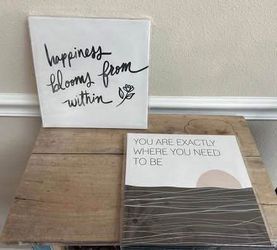 happiness
blooms from
within
YOU ARE EXACTLY
WHERE YOU NEED
TO BE